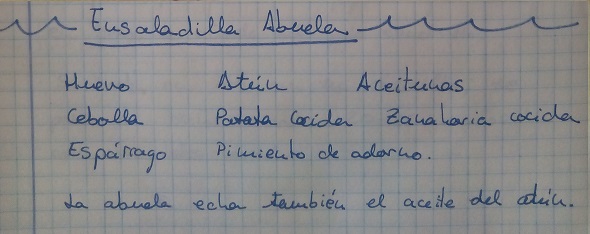 Ensaladilla Abuela
Huevo Atún Aceitunas
Cebolla Patata Cocida Zanahoria cocida
Espárrago Pimiento de adorno.
La abuela echa también el aceite del atún.